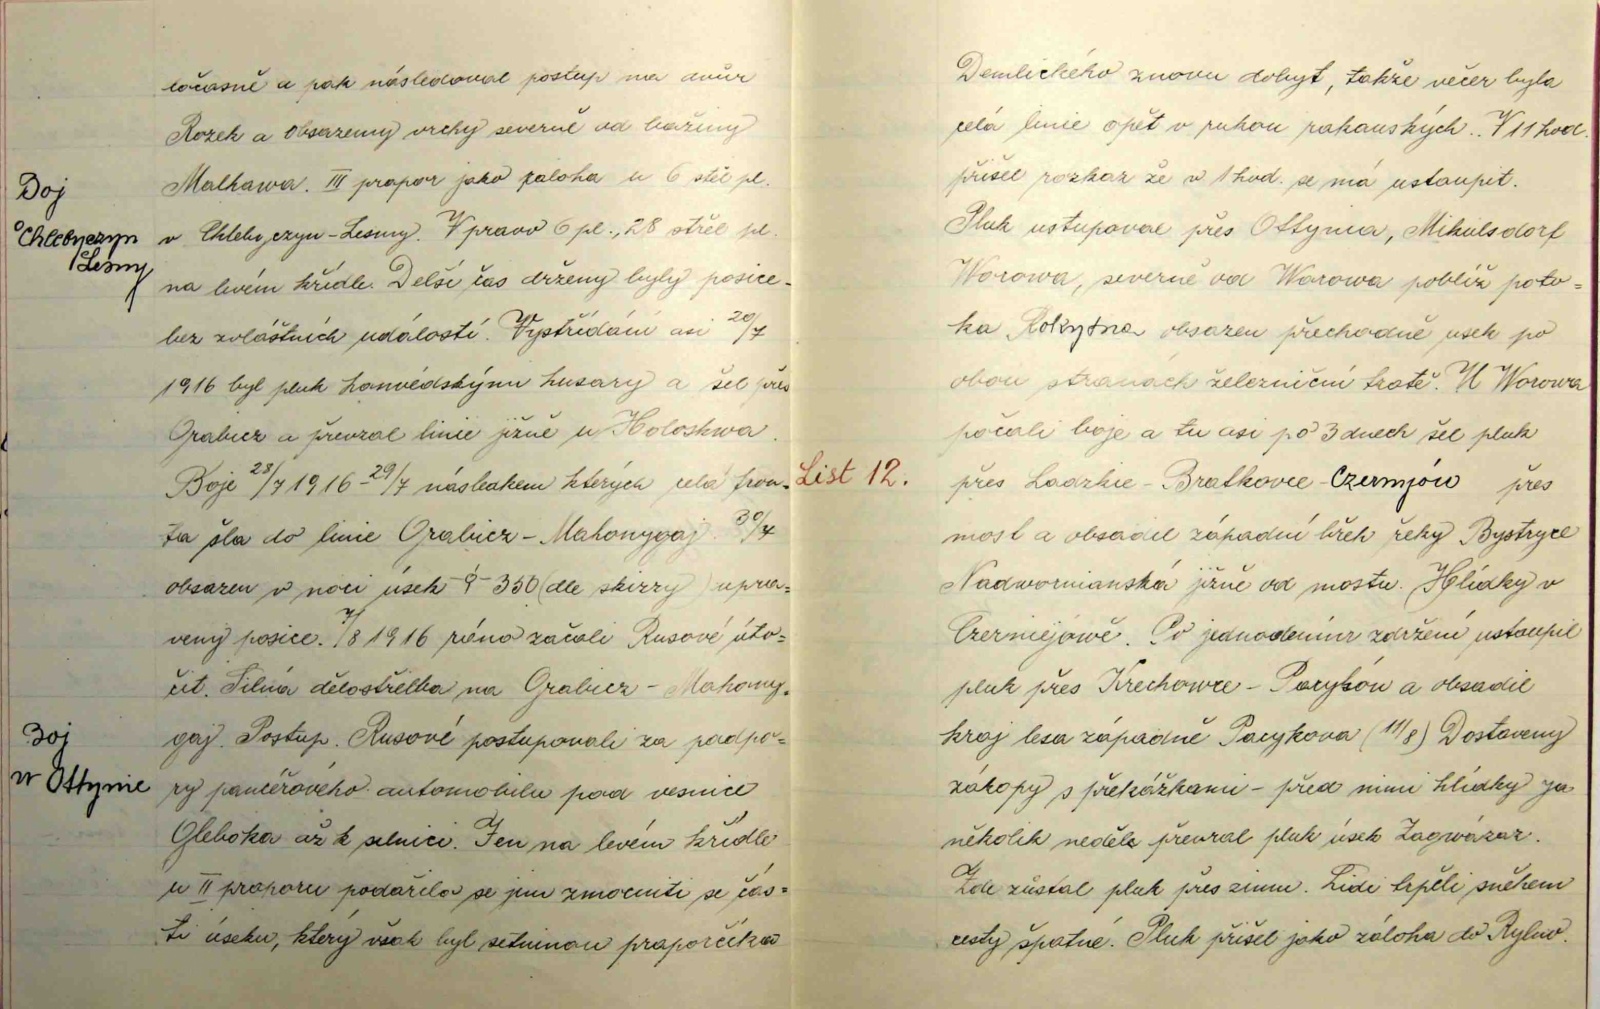 točasně a pak následoval postup na dvůr
Rozek a obsazeny vrchy severně od bažiny
Malkawa. III prapor jako záloha u 6 střel pl.
Boj
o Chlebyczyn
Lesny
v Chlebyczyn-Lesny. Vpravo 6 pl., 28 střel pl.
na levém křídle. Delší čas drženy byly posice-
bez zvláštních událostí. Vystřídání asi 20/7
1916 byl pluk honvédskými husary a šel přes
Grabicz a převzal linie jižně u Holoskwa.
Boje 28/7 1916 - 29/7 následkem kterých celá fron-
ta šla do linie Grabicz - Mahonygaj. 30/7
obsazen v noci úsek -ϙ- 350 (dle skizzy) upra=
veny posice. 7/8 1916 ráno začali Rusové úto=
čit. Silná dělostřelba na Grabicz - Mahony-
Boj
v Ottynie
gaj. Postup. Rusové postupovali za podpo=
ry pancéřového automobilu pod vesnicí
Gleboka až k silnici. Jen na levém křídle
u II praporu podařilo se jim zmocniti se čás=
ti úseku, který však byl setninou praporčíka
List 12.
Demlického znovu dobyt, takže večer byla
celá linie opět v rukou rakouských. V 11 hod.
přišel rozkaz že v 1 hod. se má ustoupit.
Pluk ustupoval přes Ottynia, Mikulsdorf
Worowa, severně od Worowa poblíž poto=
ka Rokytna obsazen přechodně úsek po
obou stranách železniční tratě. U Worowa
počali boje a tu asi po 3 dnech šel pluk
přes Ladzkie - Bratkovce - Czernjów přes
most a obsadil západní břeh řeky Bystryce
Nadwornianská jižně od mostu. Hlídky v
Czerniejówě. Po jednodením zdržení ustoupil
pluk přes Krechowce - Pacyków a obsadil
kraj lesa západně Pacykova (11/8) Dostaveny
zákopy s překážkami - před nimi hlídky za
několik neděle převzal pluk úsek Zagwázdz.
Zde zůstal pluk přes zimu. Lidé trpěli sněhem
cesty špatné. Pluk přišel jako záloha do Rylno.